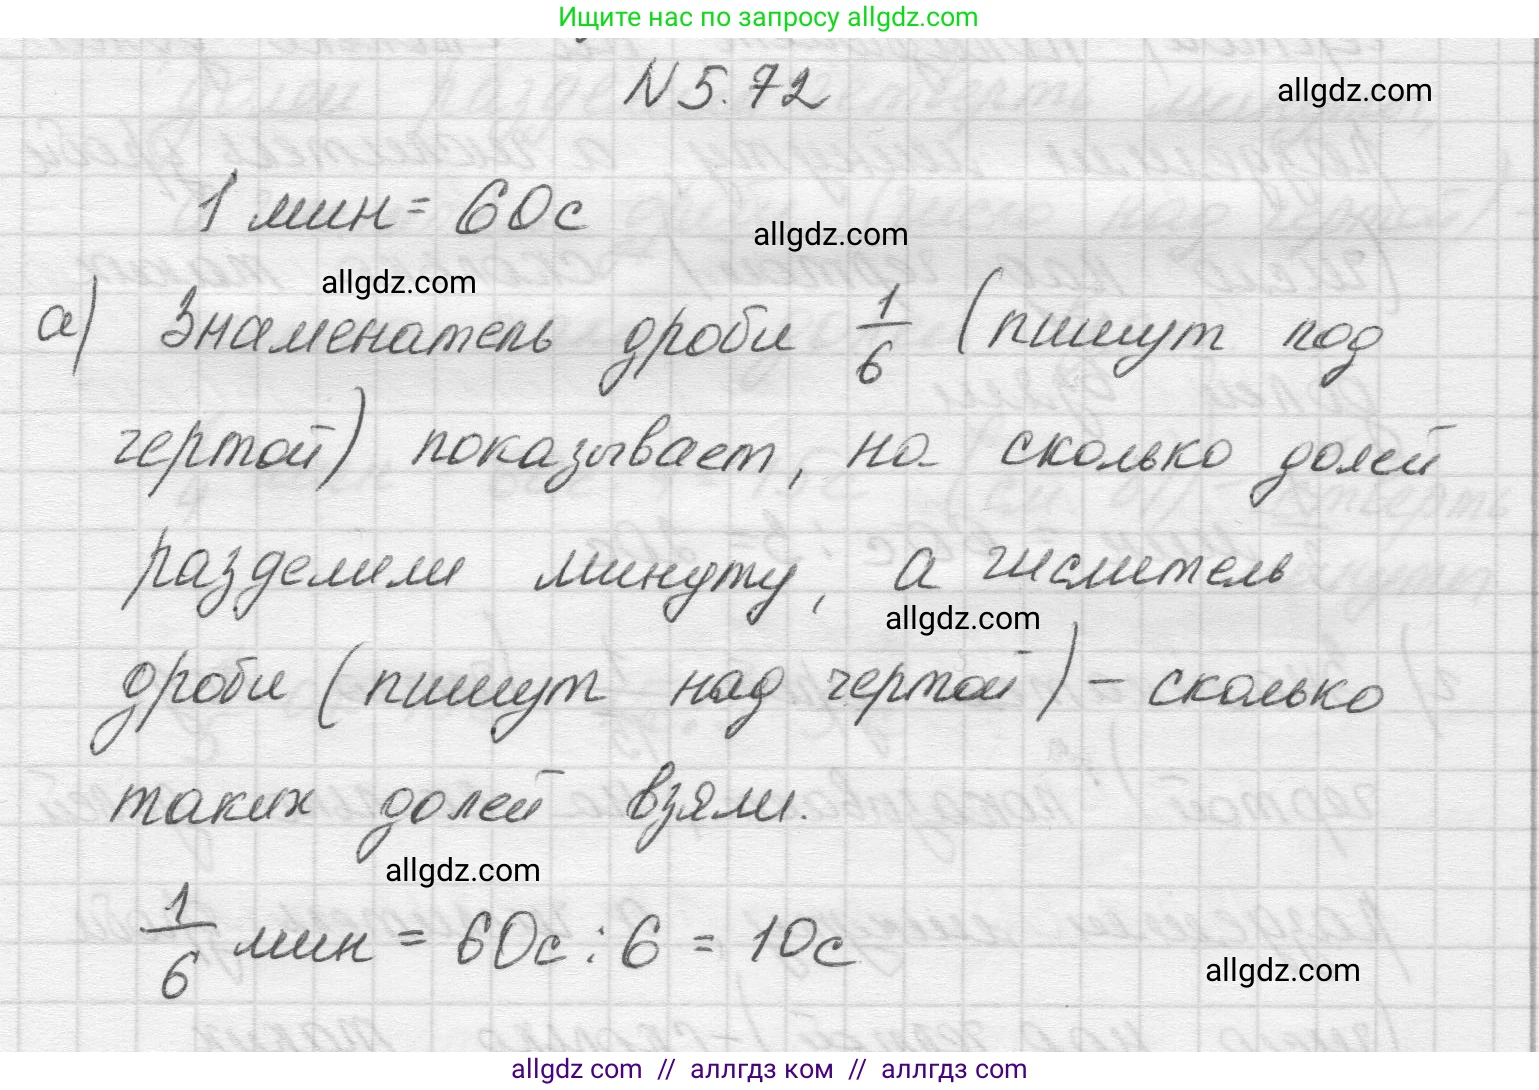 Ищите нас по запросу allgdz.com
N 5.72
allgdz.com
1 мин = 60с
allgdz.com
allgdz.com
а) Знаменатель дроби 1/6 (пишут под
чертой) показывает, на сколько долей
разделили минуту, а числитель
allgdz.com
дроби (пишут над чертой) – сколько
таких долей взяли.
allgdz.com
1/6 мин = 60с : 6 = 10с
allgdz.com
allgdz.com // аллгдз ком // allgdz.com